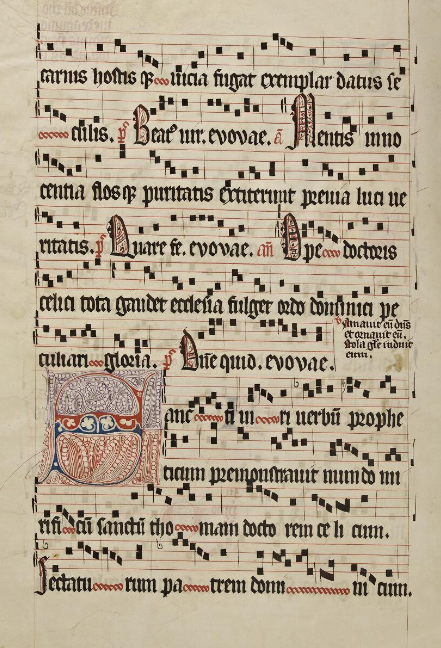 carnis hostis q inicia fugat exemplar datus se
culis. ps Beat' uir. evovae. a Mentis inno
centia flosq puritatis extiterunt premia luci ue
ritatis. ps Quare fre. evovae. an Ope doctoris
celici tota gaudet ecclesia fulget ordo dominici pe
culiari gloria. ps Dne quid. evovae.
Amauit eū dns
et ornauit eū.
stola gle induit
eum.
anc ti in ri uerbū prophe
ticum premonstrauit mundo mi
rifi cū sanctū tho mam docto rem ce li cum.
Sectatu rum pa trem domi ni cum.